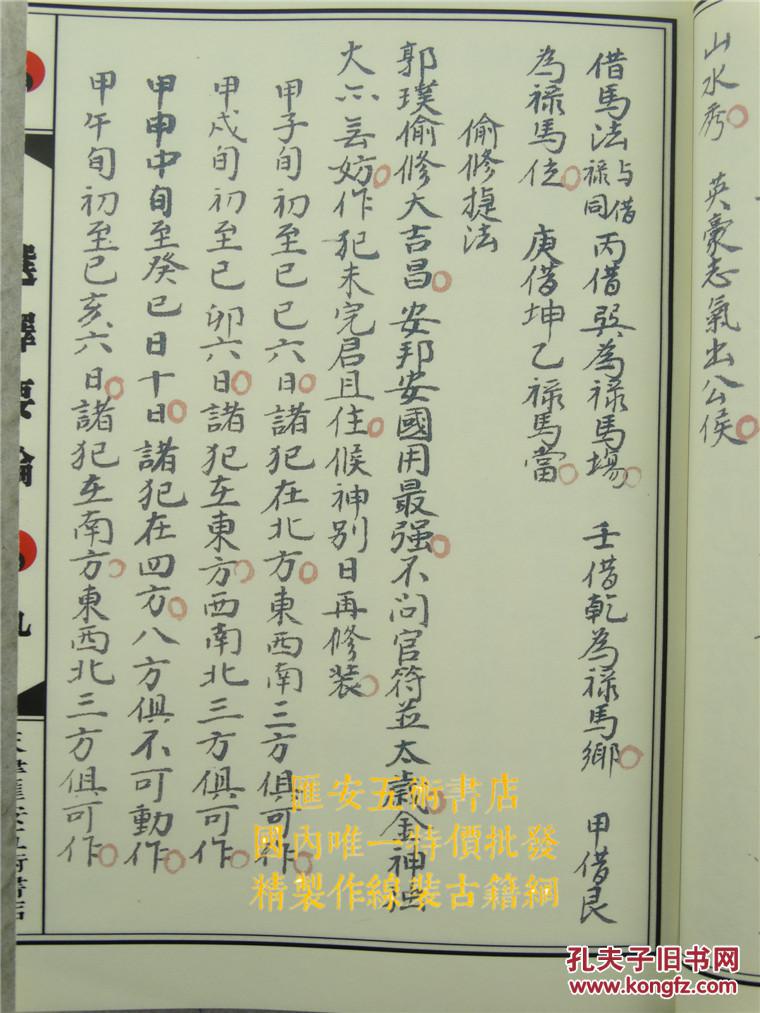 山水秀 英豪志氣出公侯
借馬法與借祿同 丙借巽為祿馬場 壬借乾為祿馬鄉 甲借艮
為祿馬位 庚借坤乙祿馬當
偷修捷法
郭璞偷修大吉昌 安邦安國用最强 不问官符並太歲 金神
火亦無妨 作犯未完君且住 候神别日再修装
甲子旬初至己巳六日 諸犯在北方 東西南三方俱可作
甲戍旬初至己卯六日 諸犯在東方 西南北三方俱可作
甲申中旬至癸巳日十日 諸犯在四方 八方俱不可動作
甲午旬初至己亥六日 諸犯在南方 東西北三方俱可作
選擇要論
九
滙安五術書店
國內唯一特價批發
精製作線装古籍網
孔夫子旧书网
www.kongfz.com